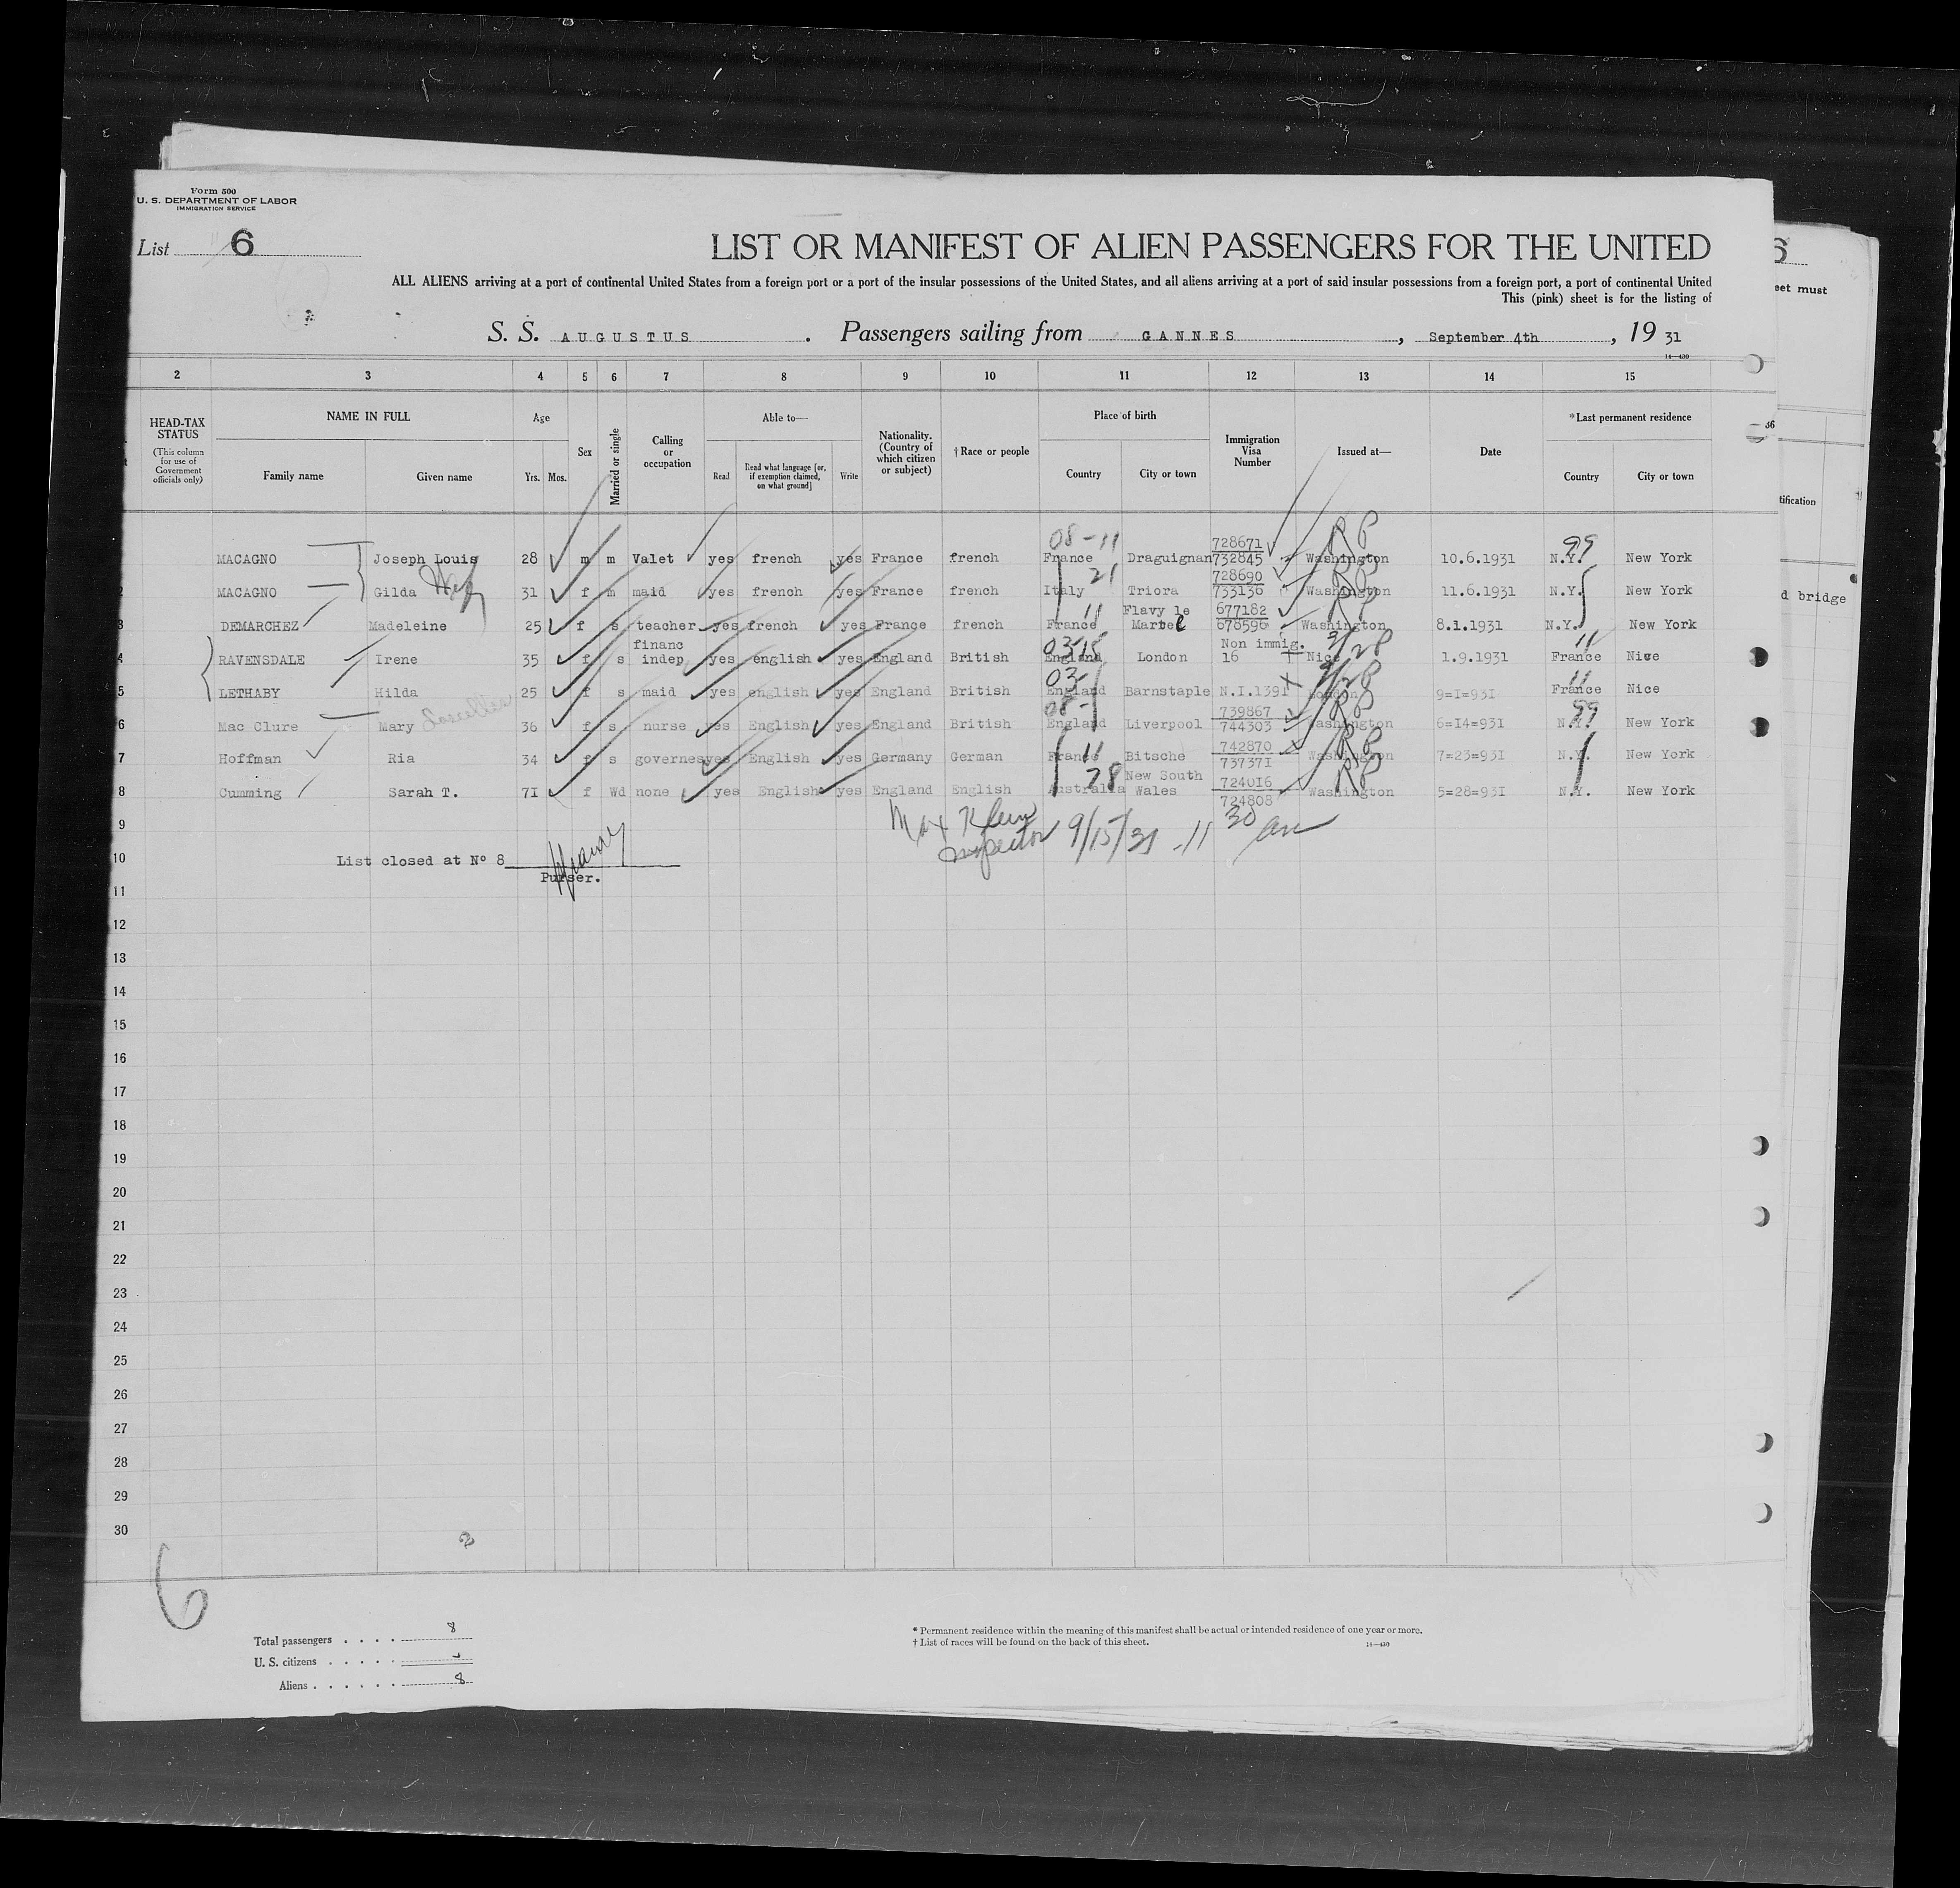 Form 500
U. S. DEPARTMENT OF LABOR
IMMIGRATION SERVICE
List 6
LIST OR MANIFEST OF ALIEN PASSENGERS FOR THE UNITED
ALL ALIENS arriving at a port of continental United States from a foreign port or a port of the insular possessions of the United States, and all aliens arriving at a port of said insular possessions from a foreign port, a port of continental United
This (pink) sheet is for the listing of
eet must
S. S. AUGUSTUS . Passengers sailing from GANNES , September 4th , 19 31
14—430
2 3 4 5 6 7 8 9 10 11 12 13 14 15
36
HEAD-TAX STATUS (This column for use of Government officials only)
NAME IN FULL
Family name Given name
Age
Yrs. Mos.
Sex
Married or single
Calling or occupation
Able to—
Read Read what language [or, if exemption claimed, on what ground] Write
Nationality. (Country of which citizen or subject)
†Race or people
Place of birth
Country City or town
Immigration Visa Number
Issued at—
Date
*Last permanent residence
Country City or town
tification
08-11 728671 RP 99
MACAGNO Joseph Louis 28 m m Valet yes french yes France french France Draguignan 732845 Washington 10.6.1931 N.Y. New York
21 728690
MACAGNO Gilda 31 f m maid yes french yes France french Italy Triora 733136 Washington 11.6.1931 N.Y. New York
d bridge
11 Flavy le 677182
3 DEMARCHEZ Madeleine 25 f s teacher yes french yes France french France Martel 678596 Washington 8.1.1931 N.Y. New York
financ 03 Non immig. 11
4 RAVENSDALE Irene 35 f s indep yes english yes England British England London 16 Nice 1.9.1931 France Nice
03- 11
5 LETHABY Hilda 25 f s maid yes english yes England British England Barnstaple N.I.1391 London 9=1=931 France Nice
08- 739867 99
6 Mac Clure Mary 36 f s nurse yes English yes England British England Liverpool 744303 Washington 6=14=931 N.Y. New York
11 742870 RP
7 Hoffman Ria 34 f s governes yes English yes Germany German France Bitsche 737371 Washington 7=23=931 N.Y. New York
28 New South 724016 RP
8 Cumming Sarah T. 71 f Wd none yes English yes England English Australia Wales 724808 Washington 5=28=931 N.Y. New York
9 Max Klein
Inspector 9/15/31 -11 30 am
10 List closed at Nº 8
Purser.
11
12
13
14
15
16
17
18
19
20
21
22
23
24
25
26
27
28
29
30
6
Total passengers . . . . 8
U. S. citizens . . . . .
Aliens . . . . . . 8
* Permanent residence within the meaning of this manifest shall be actual or intended residence of one year or more.
† List of races will be found on the back of this sheet. 14—430